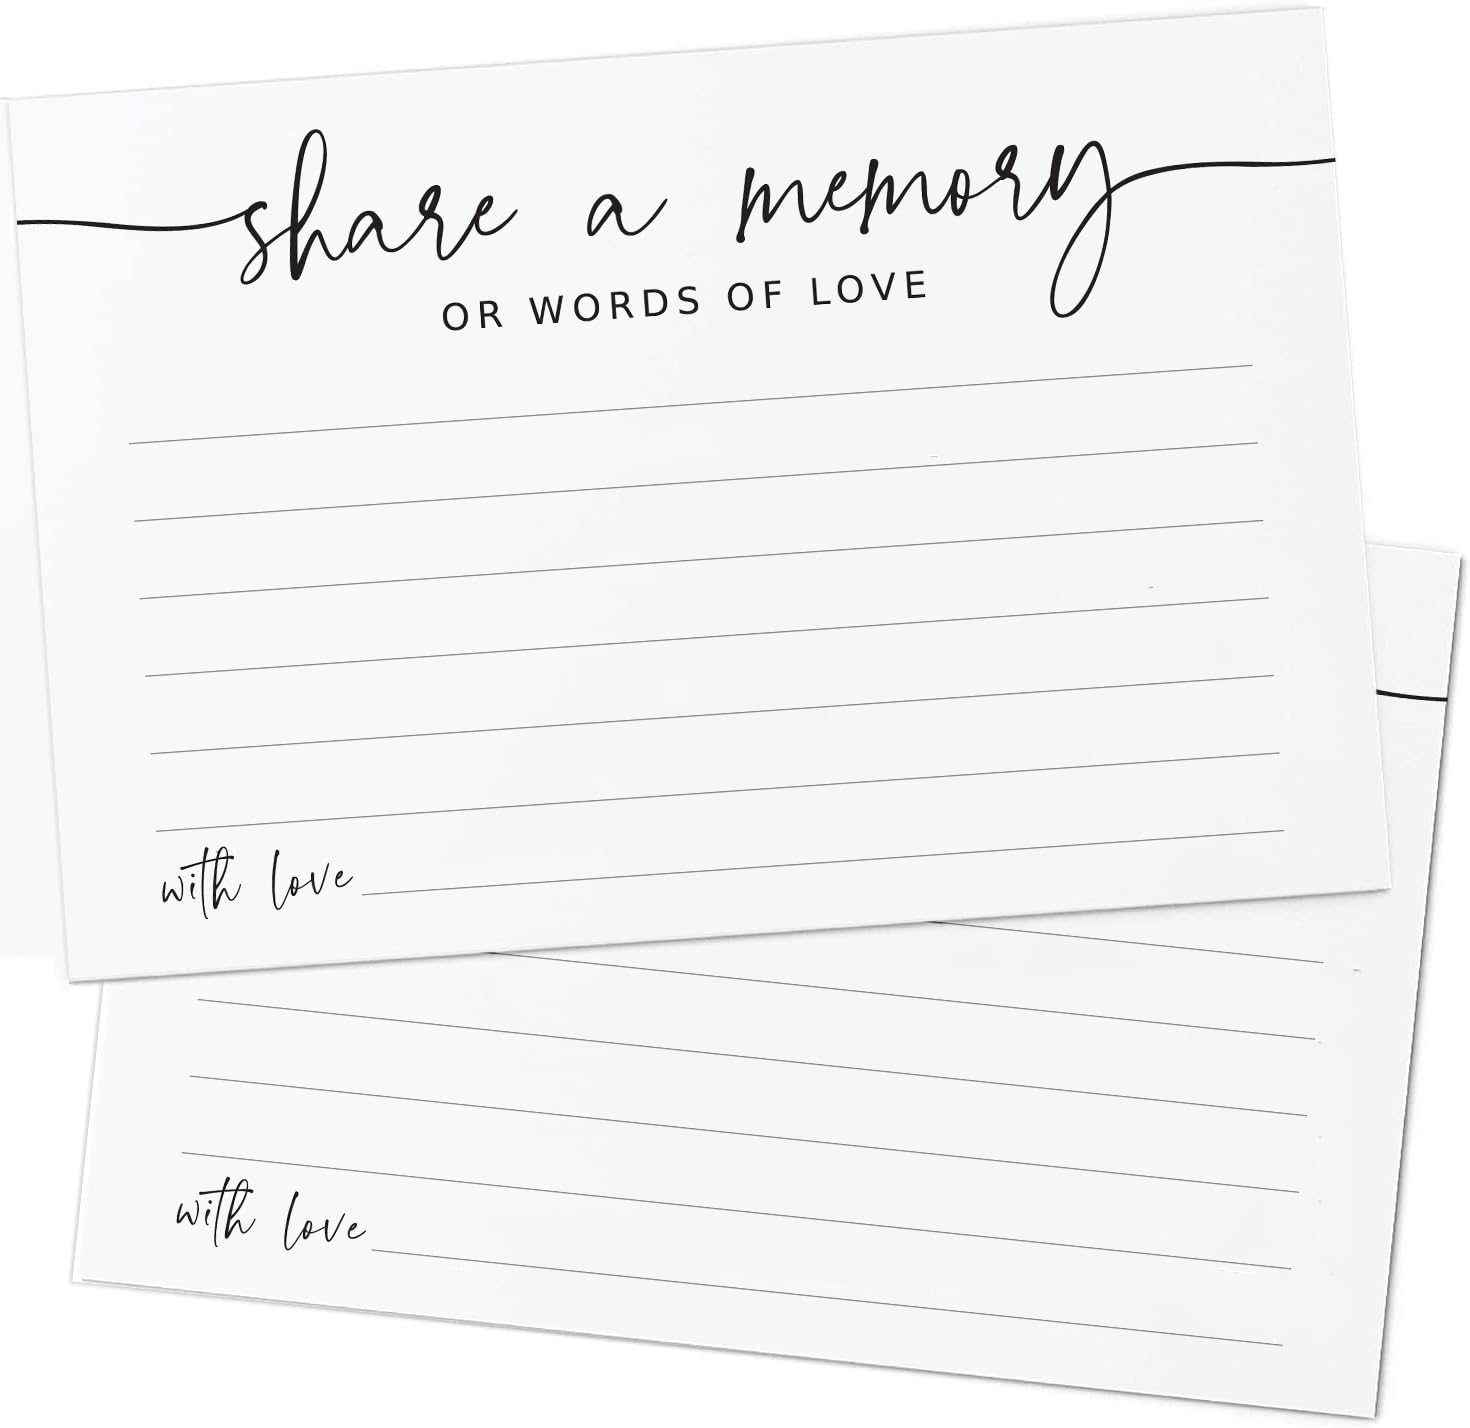 share a memory
OR WORDS OF LOVE
with love
with love